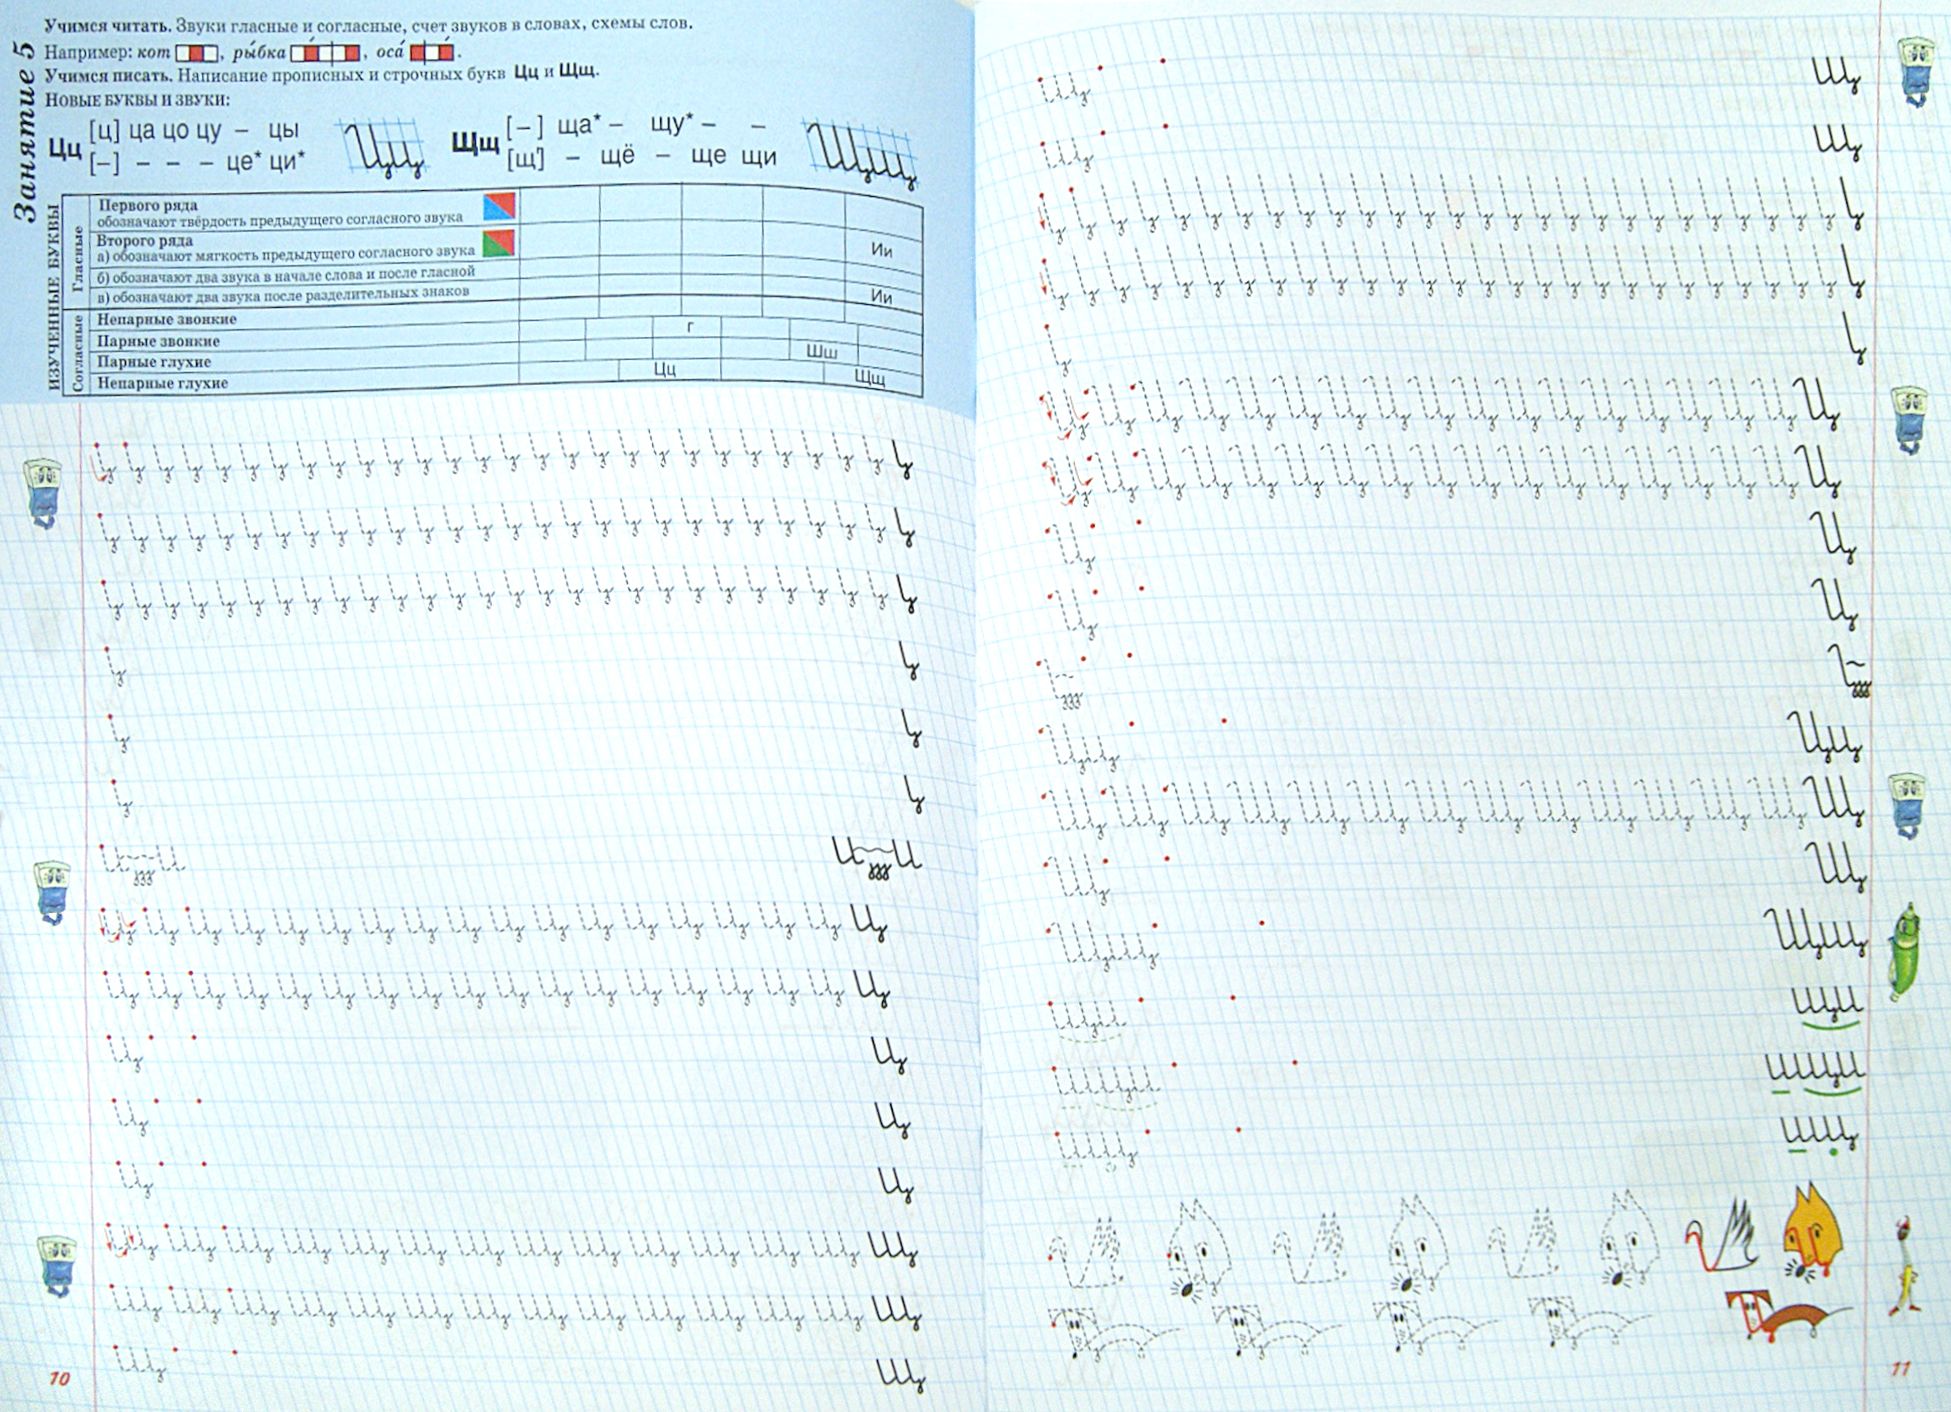 Занятие 5
Учимся читать. Звуки гласные и согласные, счет звуков в словах, схемы слов.
Например: кот , ры́бка , оса́ .
Учимся писать. Написание прописных и строчных букв Цц и Щщ.
НОВЫЕ БУКВЫ И ЗВУКИ:
Цц [ц] ца цо цу – цы
[–] – – – це* ци*
Цц
Щщ [–] ща* – щу* – –
[щ'] – щё – ще щи
Щщ
ИЗУЧЕННЫЕ БУКВЫ
Гласные
Первого ряда
обозначают твёрдость предыдущего согласного звука
Второго ряда
а) обозначают мягкость предыдущего согласного звука Ии
б) обозначают два звука в начале слова и после гласной
в) обозначают два звука после разделительных знаков Ии
Согласные
Непарные звонкие
Парные звонкие г
Парные глухие Шш
Непарные глухие Цц Щщ
ц ц
ц ц
ц ц
щ щ
щ щ
щ щ
10
Щ Щ
Щ Щ
Ц Ц
Ц Ц
Ц Ц
Ц Ц
Цц Цц
Щ Щ
Щ Щ
Щщ Щщ
щи щи
ищи ищи
11